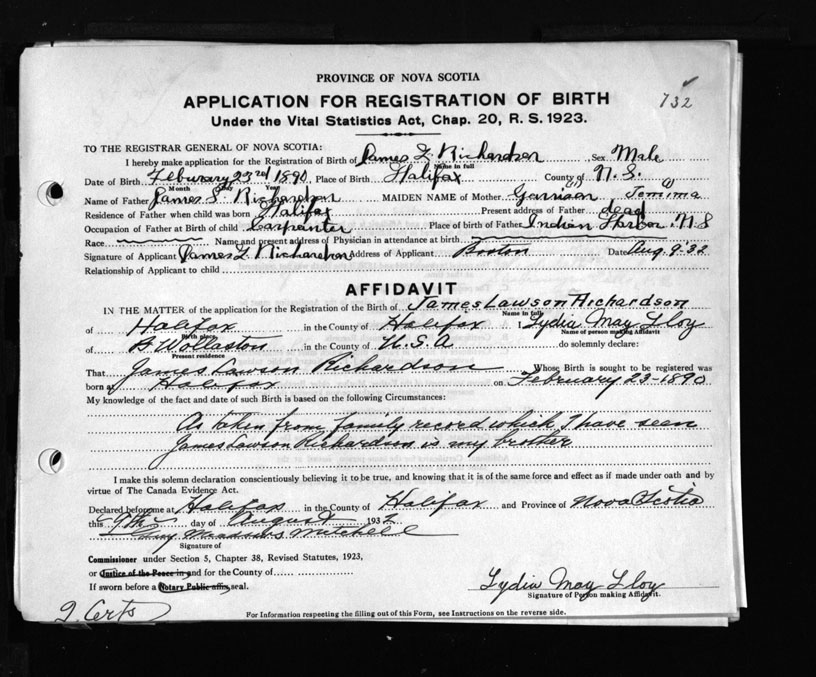 PROVINCE OF NOVA SCOTIA
APPLICATION FOR REGISTRATION OF BIRTH
732
Under the Vital Statistics Act, Chap. 20, R. S. 1923.
TO THE REGISTRAR GENERAL OF NOVA SCOTIA:
I hereby make application for the Registration of Birth of James L. Richardson Sex Male
Name in full
Date of Birth Feburary 23rd 1890 Place of Birth Halifax County of N. S.
Month Day Year
Name of Father James S. Richardson MAIDEN NAME of Mother Garrison Jemima
Residence of Father when child was born Halifax Present address of Father dead
Occupation of Father at Birth of child Carpenter Place of birth of Father Indian Harbor N S
Race Name and present address of Physician in attendance at birth
Signature of Applicant James L. Richardson Address of Applicant Boston Date Aug. 9-32
Relationship of Applicant to child
AFFIDAVIT
IN THE MATTER of the application for the Registration of the Birth of James Lawson Richardson
Name in full
of Halifax in the County of Halifax I Lydia May Lloy
Birth place Name of person making Affidavit
of Wollaston in the County of U.S.A do solemnly declare:
Present residence
That James Lawson Richardson Whose Birth is sought to be registered was
born at Halifax on February 23-1890
My knowledge of the fact and date of such Birth is based on the following Circumstances:
As taken from family record which I have seen
James Lawson Richardson is my brother
I make this solemn declaration conscientiously believing it to be true, and knowing that it is of the same force and effect as if made under oath and by
virtue of The Canada Evidence Act.
Declared before me at Halifax in the County of Halifax and Province of Nova Scotia
this 9th day of August 1932
Mitchell
Signature of
Commissioner under Section 5, Chapter 38, Revised Statutes, 1923,
or Justice of the Peace in and for the County of
If sworn before a Notary Public affix seal.
Lydia May Lloy
Signature of Person making Affidavit.
2 Certs
For Information respecting the filling out of this Form, see Instructions on the reverse side.